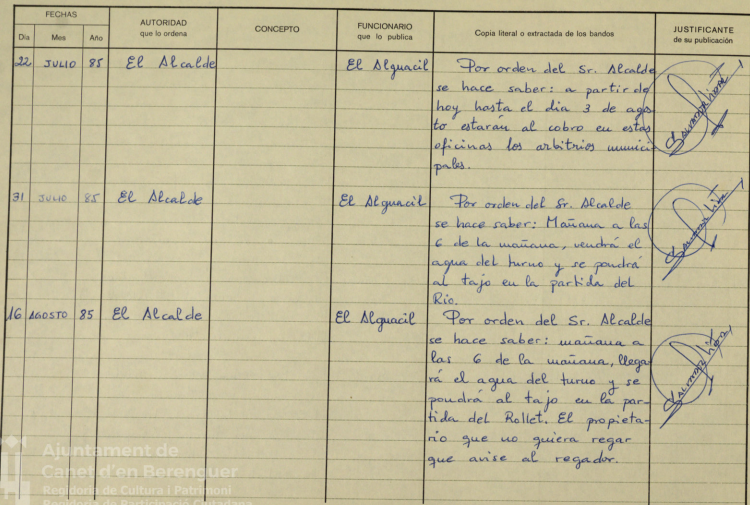 FECHAS
Dia Mes Año
AUTORIDAD
que lo ordena
CONCEPTO
FUNCIONARIO
que lo publica
Copia literal o extractada de los bandos
JUSTIFICANTE
de su publicación
22 JULIO 85 El Alcalde El Alguacil Por orden del Sr. Alcalde
se hace saber: a partir de
hoy hasta el dia 3 de ago
to estarán al cobro en estas
oficinas los arbitrios munici
pales.
31 JULIO 85 El Alcalde El Alguacil Por orden del Sr. Alcalde
se hace saber: Mañana a las
6 de la mañana, vendrá el
agua del turno y se pondrá
al tajo en la partida del
Rio.
16 AGOSTO 85 El Alcalde El Alguacil Por orden del Sr. Alcalde
se hace saber: mañana a
las 6 de la mañana, llega
rá el agua del turno y se
pondrá al tajo en la par-
tida del Rollet. El propieta-
rio que no quiera regar
que avise al regador.
Ajuntament de
Canet d'en Berenguer
Regidoria de Cultura i Patrimoni
Regidoria de Participació Ciutadana